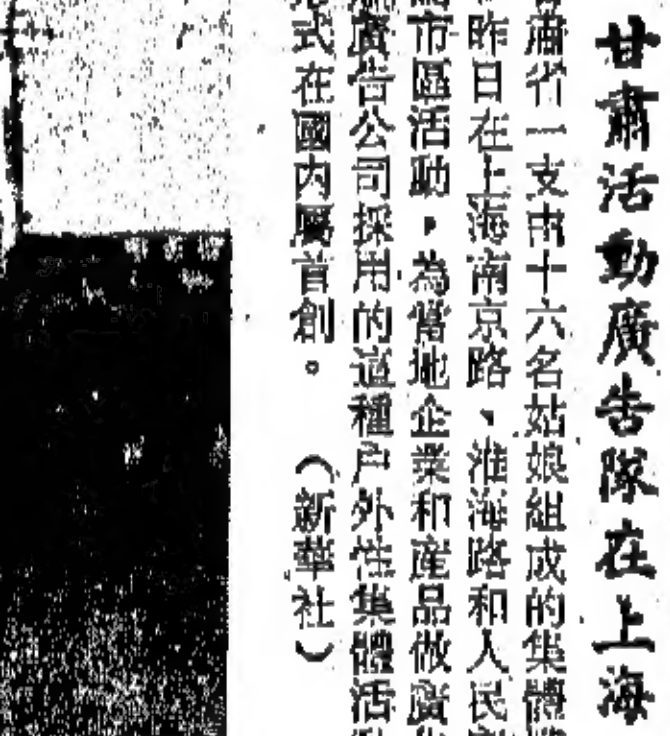 甘肅活動廣告隊在上海
肅省一支由十六名姑娘組成的集體
昨日在上海南京路、淮海路和人民
市區活動，為當地企業和産品做廣
廣告公司採用的這種戶外性集體活
式在國内屬首創。（新華社）